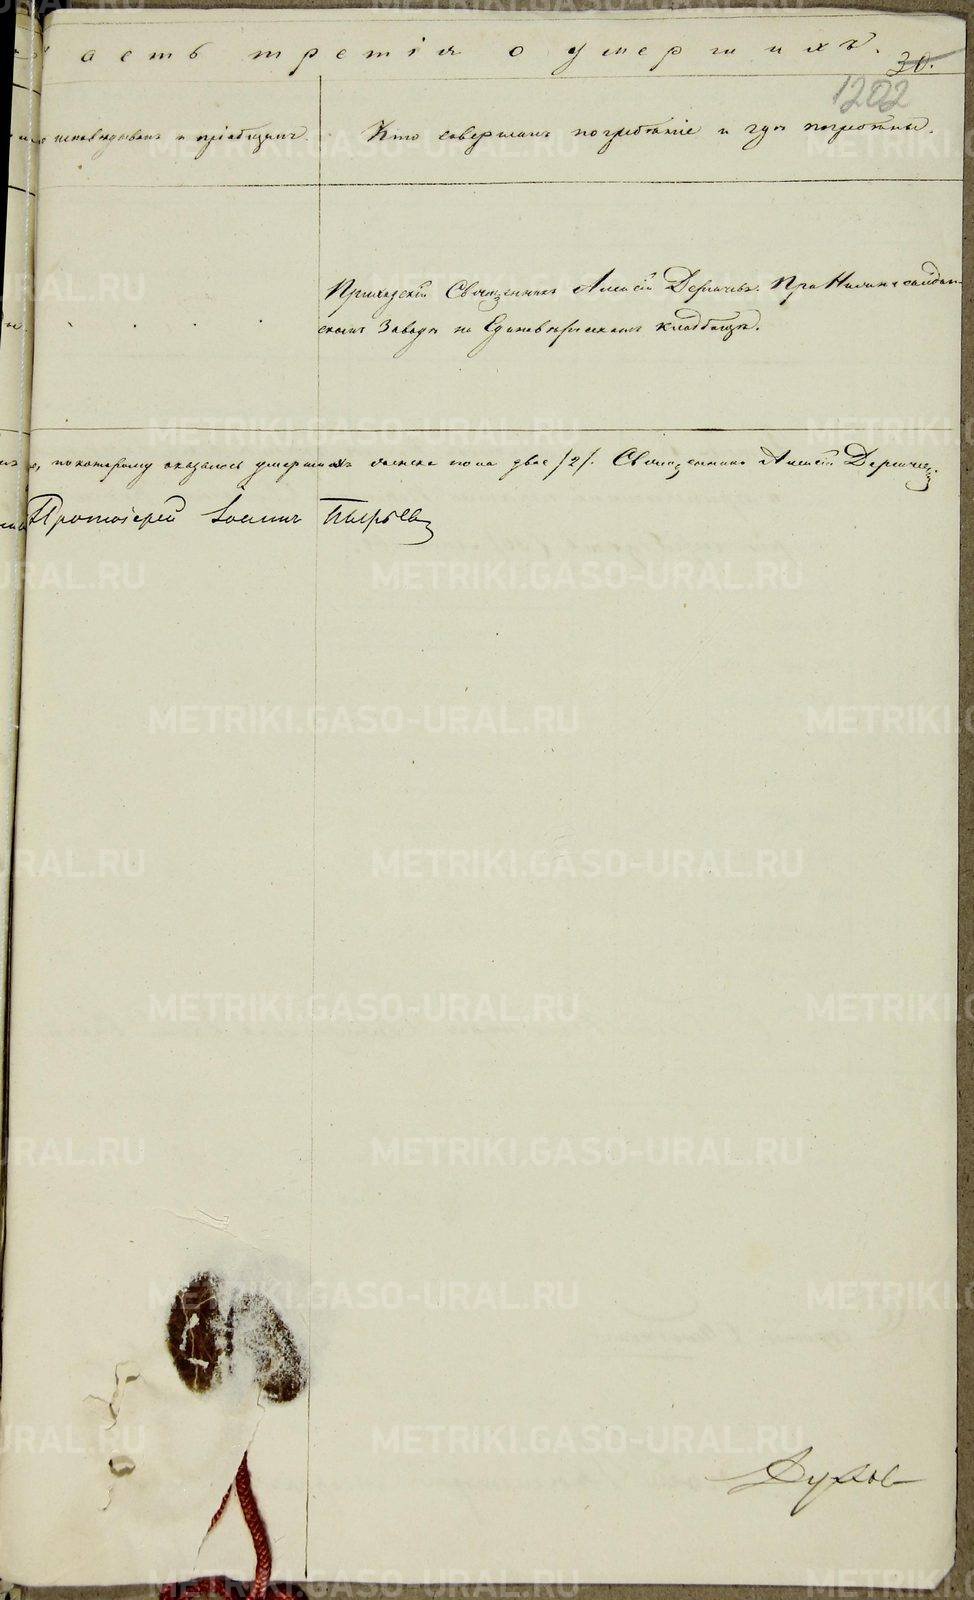 асть третія о умершихъ.
30.
1202
исповѣдывалъ и пріобщалъ.
Кто совершалъ погребеніе и гдѣ погребены.
Приходскій Священникъ Алексій Дерпчевъ. При Нижнесалдин-
скомъ Заводѣ на Единовѣрческомъ кладбищѣ.
по которому оказалось умершихъ женска пола двѣ /2/. Священникъ Алексій
Протоіерей Іоаннъ Пырьевъ
METRIKI.GASO-URAL.RU